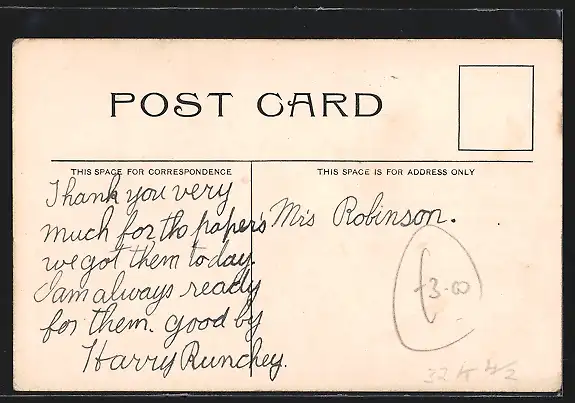 POST CARD
THIS SPACE FOR CORRESPONDENCE
THIS SPACE IS FOR ADDRESS ONLY
Thank you very
much for tho paper's
we got them to day.
I am always ready
for them. good by
Harry Runchey.
Mrs Robinson.
£3-00